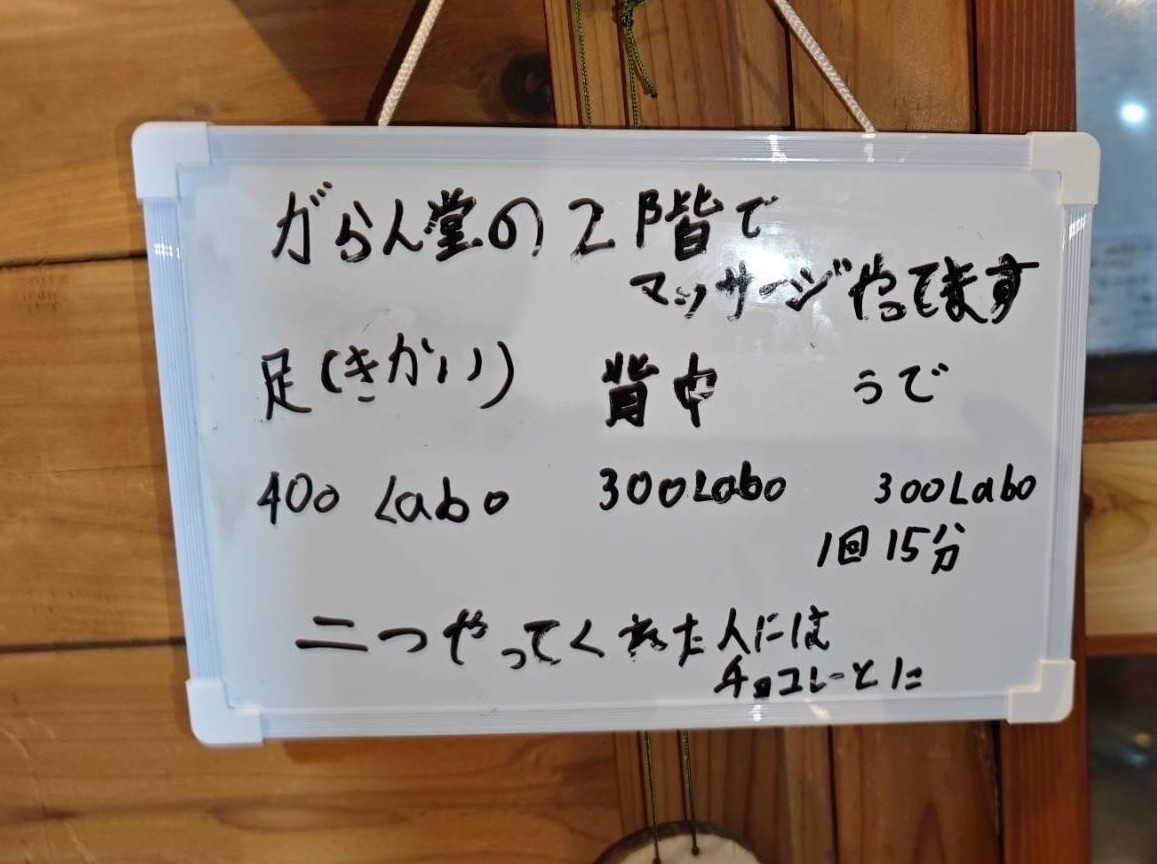 がらん堂の2階で
マッサージやってます
足(きかい) 背中 うで
400 Labo 300Labo 300Labo
1回15分
二つやってくれた人には
チョコレートに